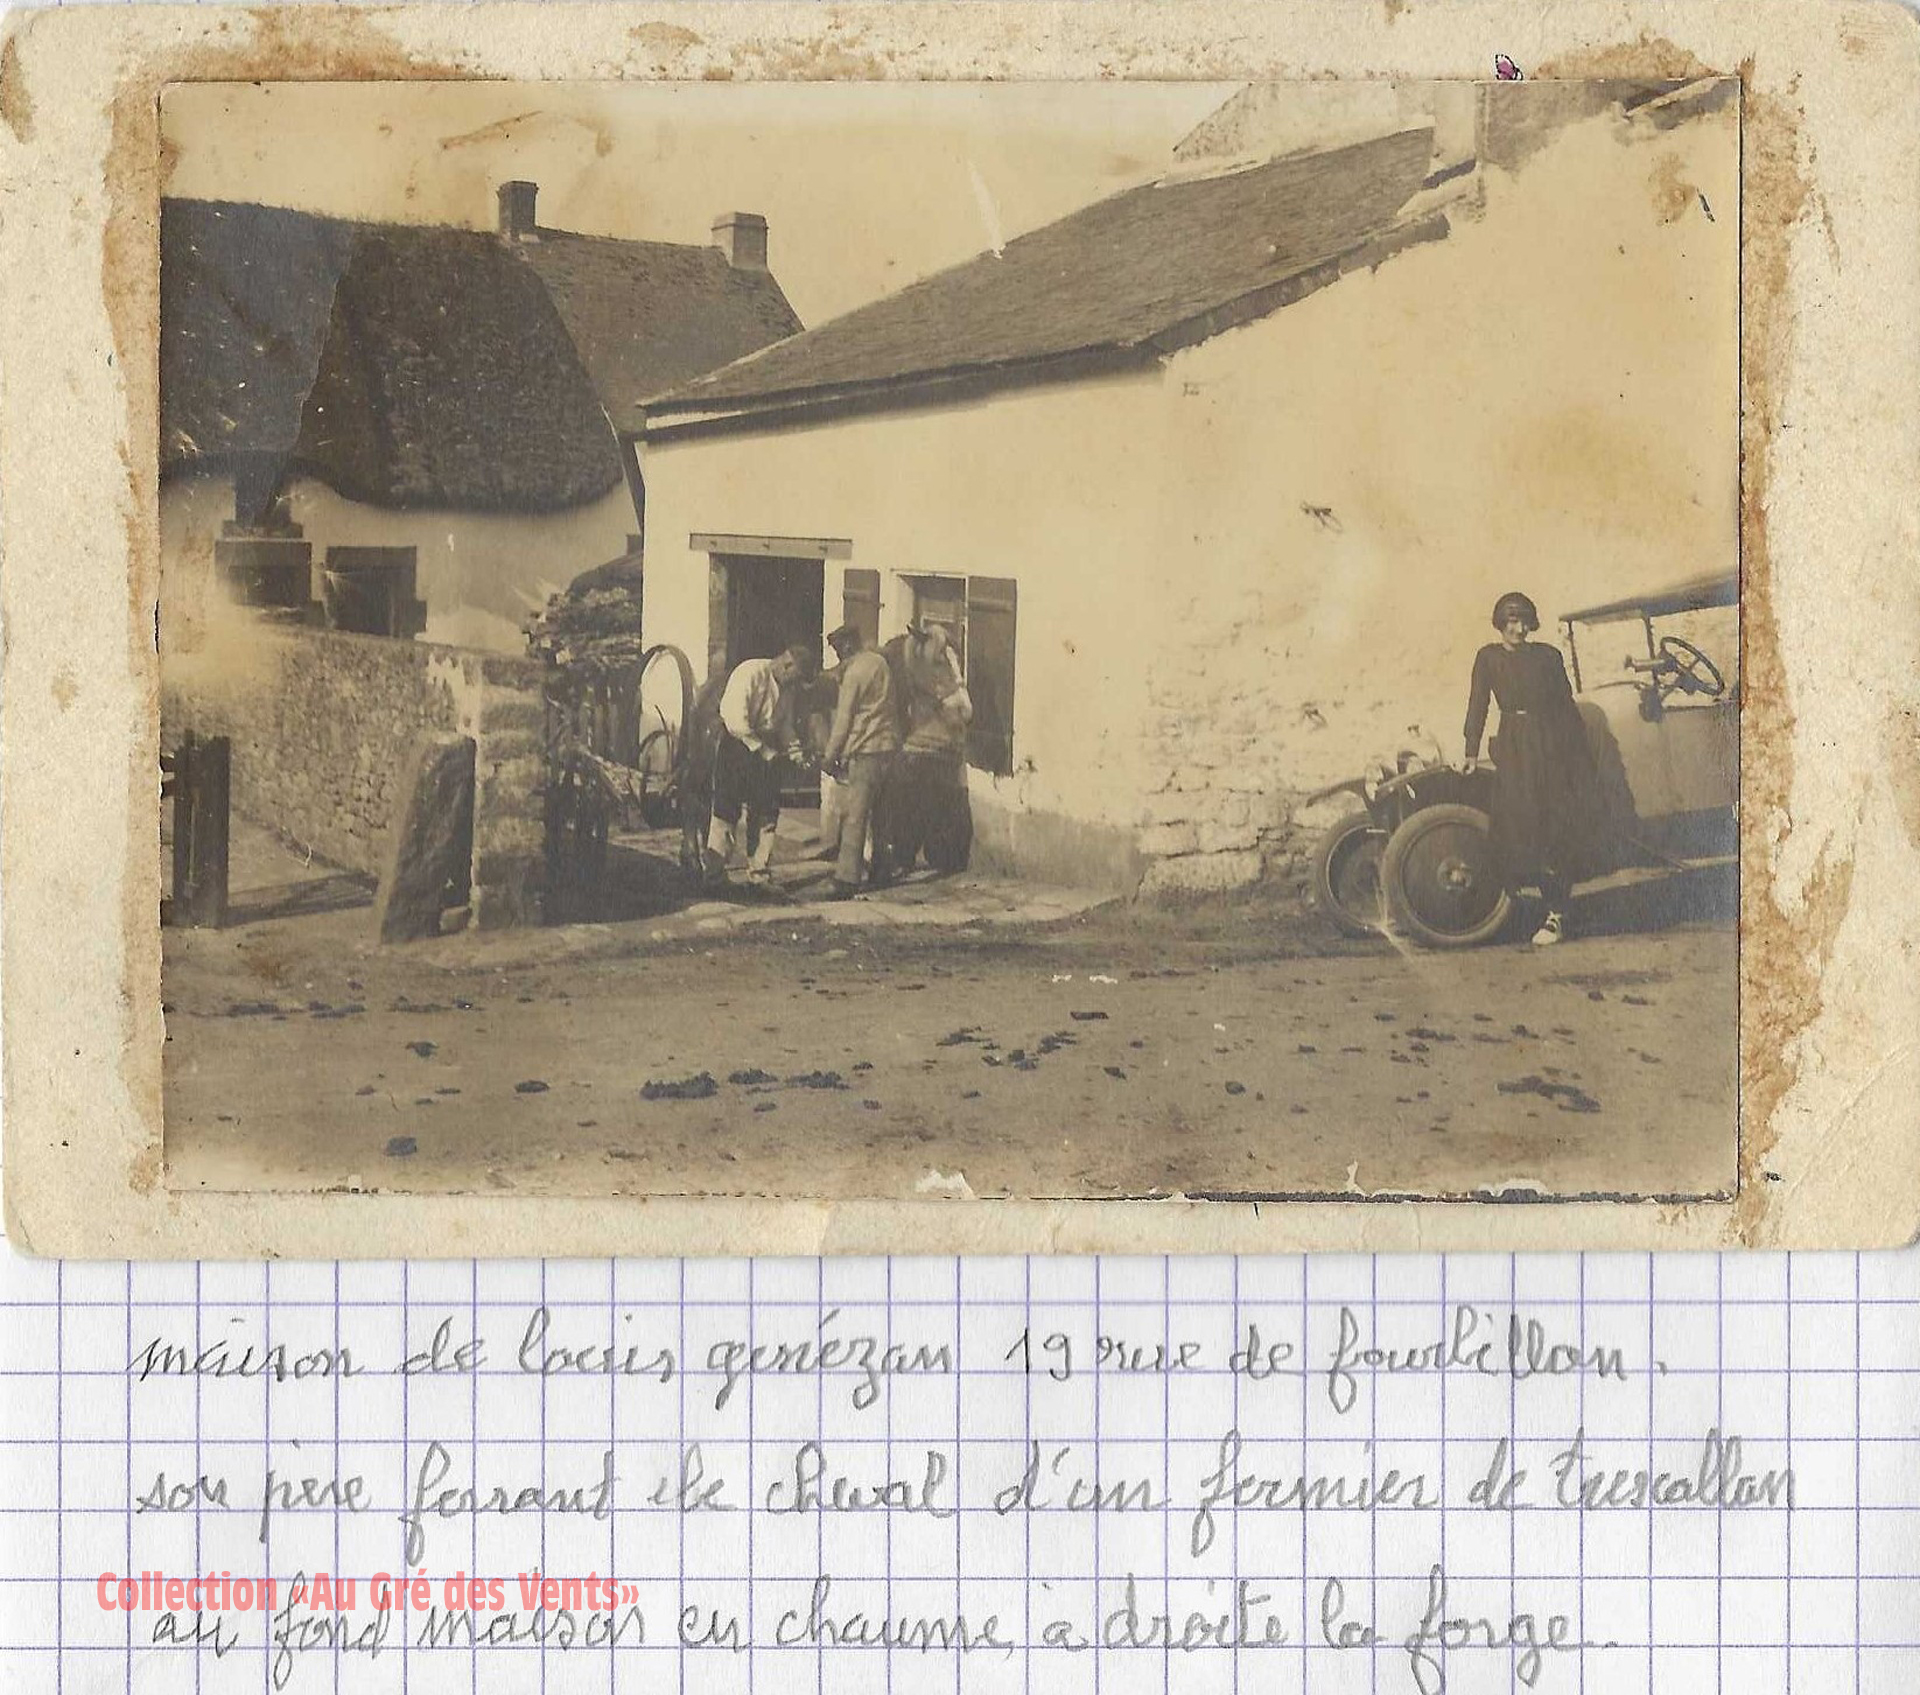 maison de louis genézan 19 rue de fourbillon.
son père ferrant le cheval d'un fermier de trescallan
Collection «Au Gré des Vents»
au fond maison en chaume, à droite la forge.